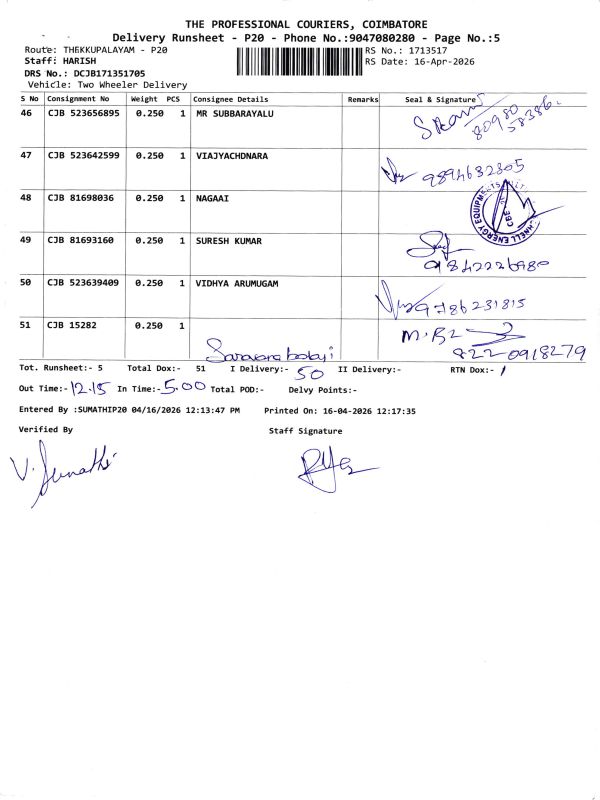 THE PROFESSIONAL COURIERS, COIMBATORE
Delivery Runsheet - P20 - Phone No.:9047080280 - Page No.:5
Route: THEKKUPALAYAM - P20 RS No.: 1713517
Staff: HARISH RS Date: 16-Apr-2026
DRS No.: DCJB171351705
Vehicle: Two Wheeler Delivery
S No Consignment No Weight PCS Consignee Details Remarks Seal & Signature
46 CJB 523656895 0.250 1 MR SUBBARAYALU 80980 58386.
47 CJB 523642599 0.250 1 VIAJYACHDNARA 9894632805
48 CJB 81698036 0.250 1 NAGAAI
49 CJB 81693160 0.250 1 SURESH KUMAR 9842226980
50 CJB 523639409 0.250 1 VIDHYA ARUMUGAM 9786231815
51 CJB 15282 0.250 1 Saravana balaji 8220918279
Tot. Runsheet:- 5 Total Dox:- 51 I Delivery:- 50 II Delivery:- RTN Dox:- 1
Out Time:- 12.15 In Time:- 5.00 Total POD:- Delvy Points:-
Entered By :SUMATHIP20 04/16/2026 12:13:47 PM Printed On: 16-04-2026 12:17:35
Verified By Staff Signature
V. Sumathi